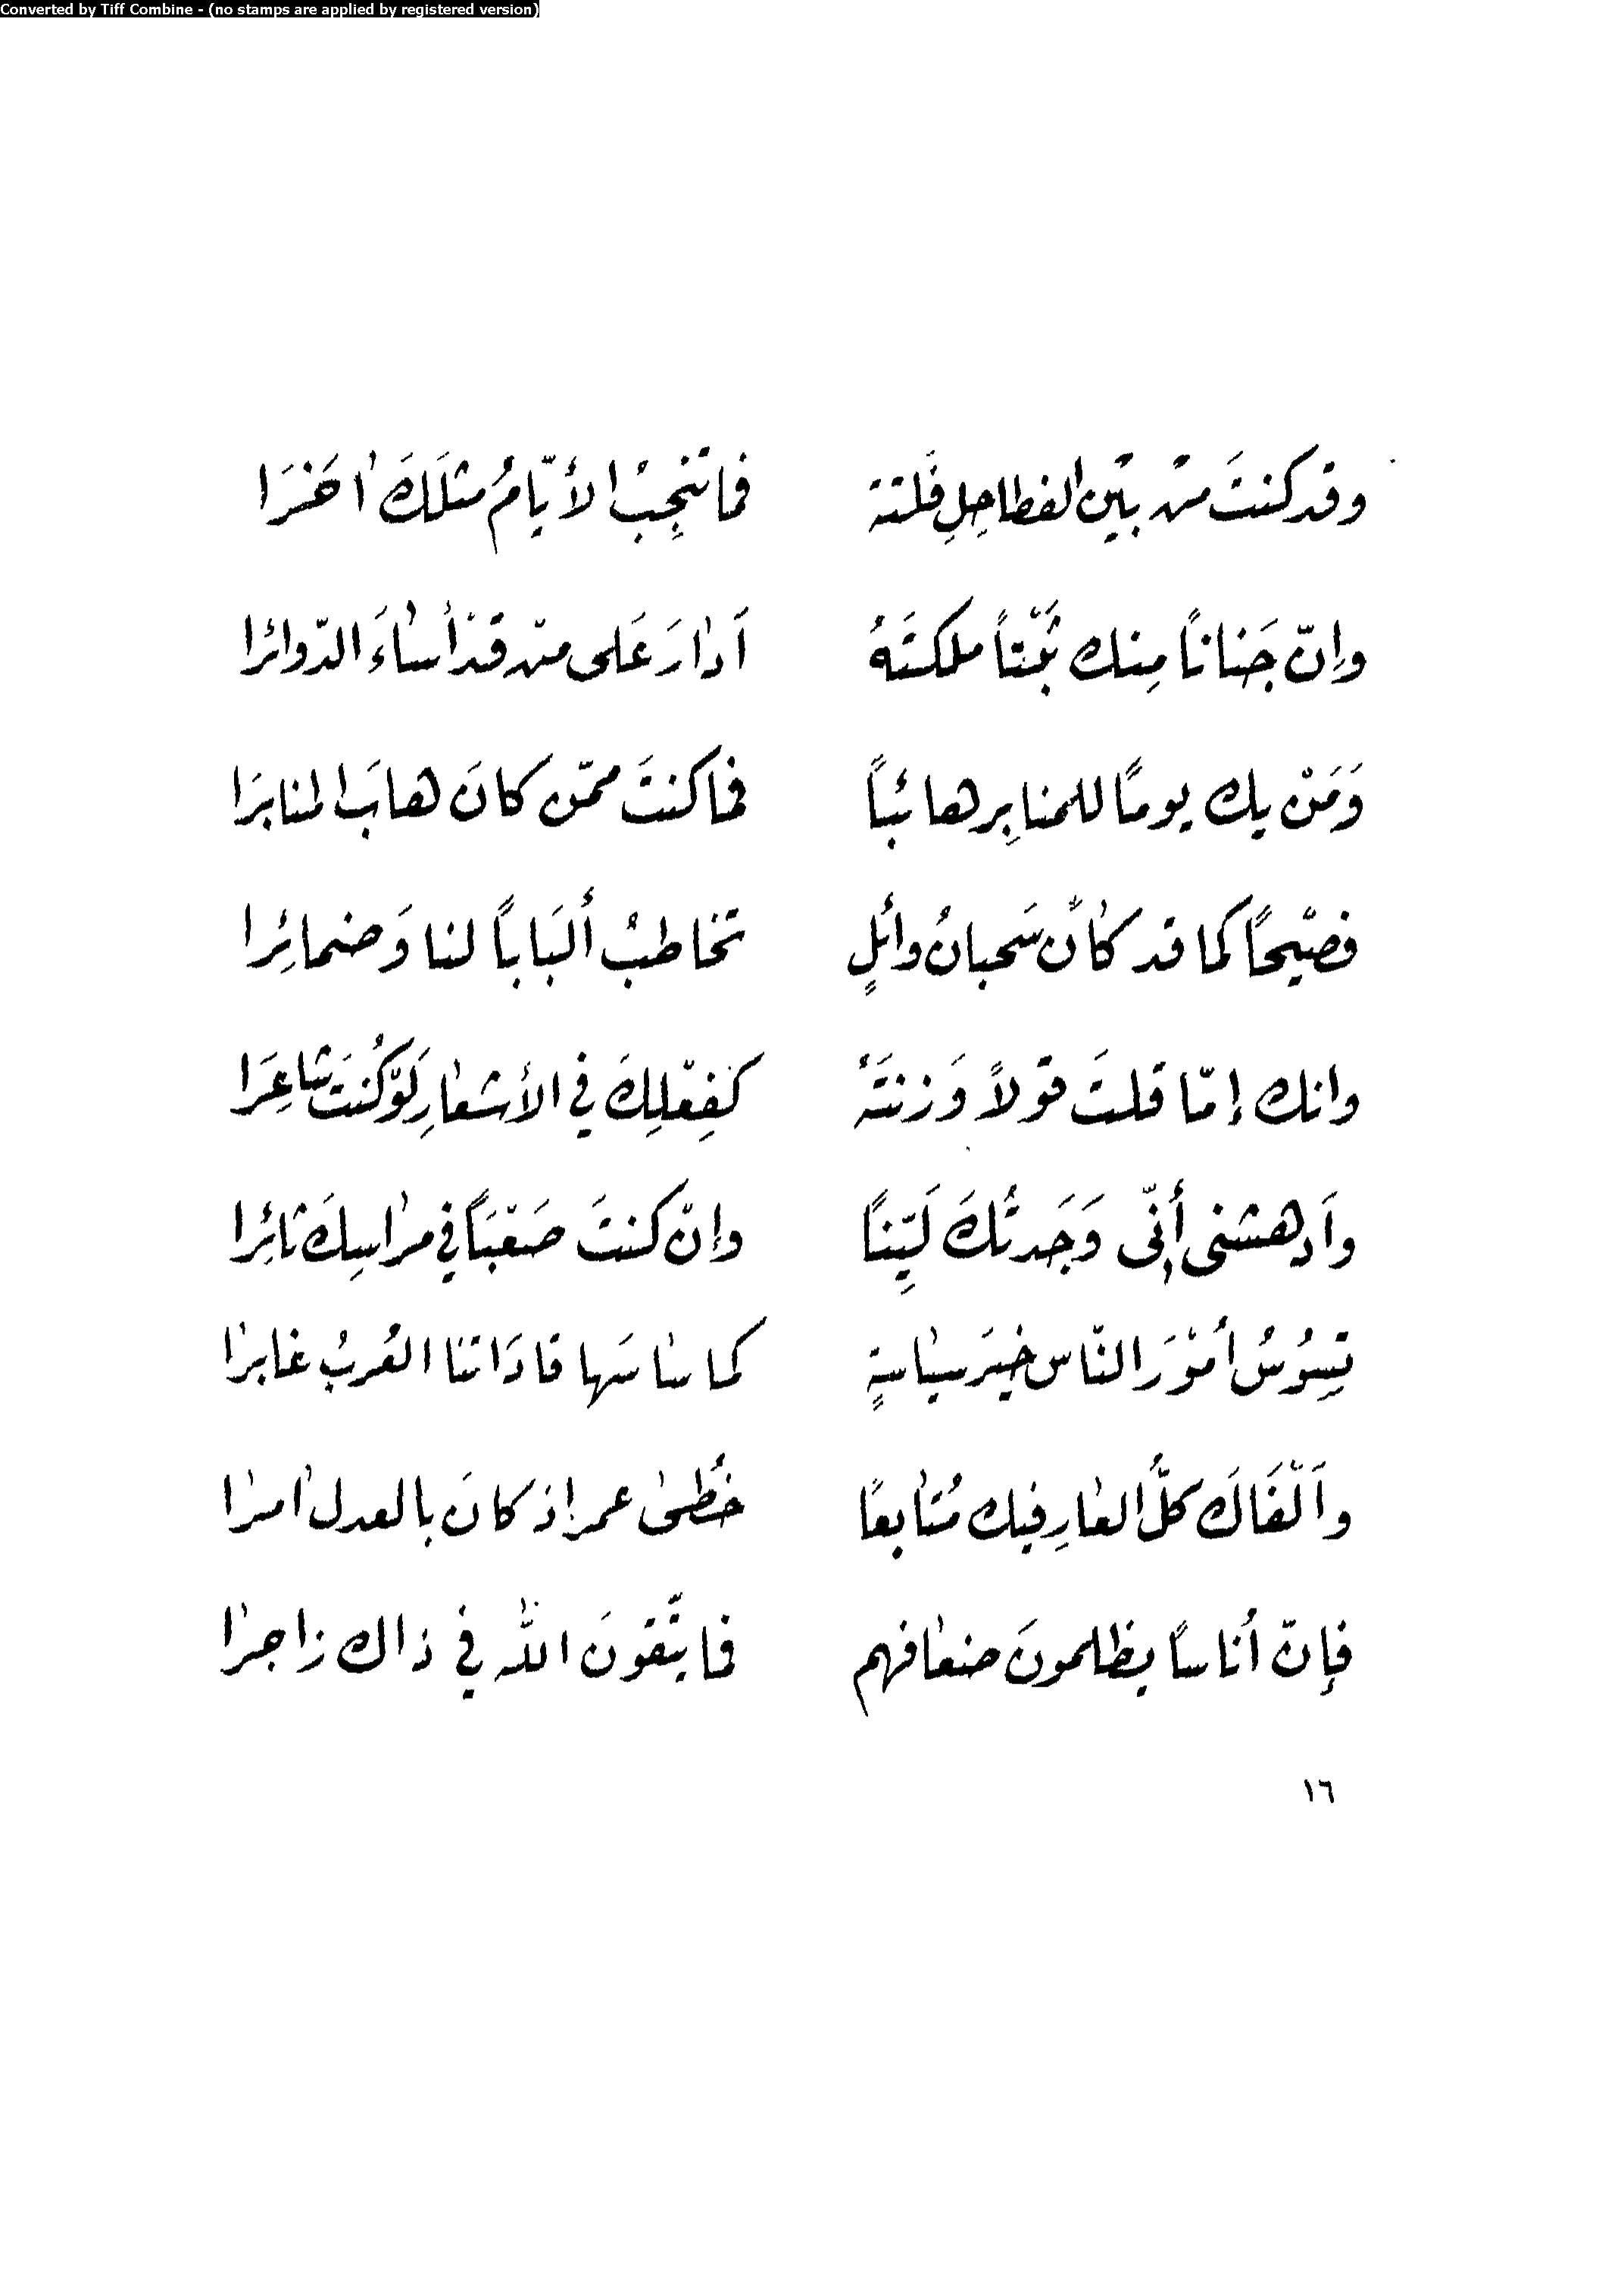 Converted by Tiff Combine - (no stamps are applied by registered version)
وقد كنتَ منْ بيْن الفطاحِلِ فَلتة فما تنجِبُ الأيّامُ مثلَكَ اخَرَا
وإنّ جَناناً مِنك ثَبْتاً ملكتَهُ اَدارَ عَلى منْ قدْ أساءَ الدّوائرا
وَمَنْ يك يومًا للمنابِر هائباً فما كنتَ ممّن كانَ هابَ المنابرَا
فصيْحًا كما قد كانَ سَحبانُ وائلٍ تخاطبُ ألبَاباً لنا وَضمائِرا
وانك إمّا قلتَ قولاً وَزنتَهُ كفِعْلِكَ في الأشعارِ لَوْ كُنتَ شاعِرَا
واَدهشنى أنِّى وَجَدتُكَ لَيِّنًا وإنْ كنتَ صَعْبَاً في مراسِكَ ثائِرا
تسِوُسُ اُمْوَر النّاس خيرَ سياسةٍ كما ساسَها قادَاتنا العُربُ غابرا
واَلْفَاكَ كلُّ العارِفيك مُتابعًا خُطىٰ عمر إذ كانَ بالعدل امرا
فإنّ اُناسًا يظلمونَ ضعافهم فما يتّقونَ اللّٰه في ذاك زاجرا
١٦